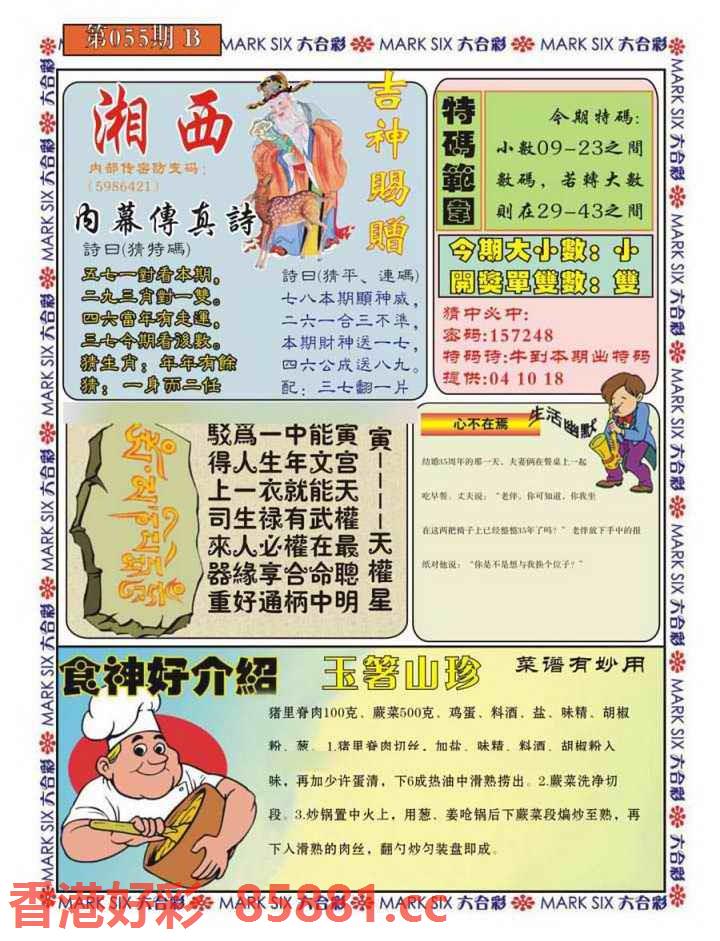 第055期 B
MARK SIX 六合彩 MARK SIX 六合彩 MARK SIX 六合彩
湘西
内部传密防支码：
(5986421)
內幕傳真詩
吉神賜贈
詩曰(猜特碼)
五七一對看本期，
二九三肖對一雙。
四六當年有走運，
三七今期看波數。
猜生肖：年年有餘
猜：一身而二任
詩曰(猜平、連碼)
七八本期顯神威，
二六一合三不準，
本期財神送一七，
四六公成送八九。
配：三七翻一片
特碼範圍
今期特碼：
小數09-23之間
數碼，若轉大數
則在29-43之間
今期大小數：小
開獎單雙數：雙
猜中必中：
密码：157248
特码诗：牛到本期出特码
提供：04 10 18
寅一一一天權星
寅宫天權最聰明
能文能武在命中
中年就有權合柄
一生衣禄必享通
爲人一生人緣好
駁得上司來器重
心不在焉
生活幽默
结婚35周年的那一天，夫妻俩在餐桌上一起
吃早餐。丈夫说：“老伴，你可知道，你我坐
在这两把椅子上已经整整35年了吗？”老伴放下手中的报
纸对他说：“你是不是想与我换个位子？”
食神好介紹
玉箸山珍
菜谱有妙用
猪里脊肉100克、蕨菜500克、鸡蛋、料酒、盐、味精、胡椒
粉、葱。1.猪里脊肉切丝，加盐、味精、料酒、胡椒粉入
味，再加少许蛋清，下6成热油中滑熟捞出。2.蕨菜洗净切
段。3.炒锅置中火上，用葱、姜呛锅后下蕨菜段煸炒至熟，再
下入滑熟的肉丝，翻勺炒匀装盘即成。
香港好彩 85881.cc
MARK SIX 六合彩 MARK SIX 六合彩 MARK SIX 六合彩 MARK SIX 六合彩